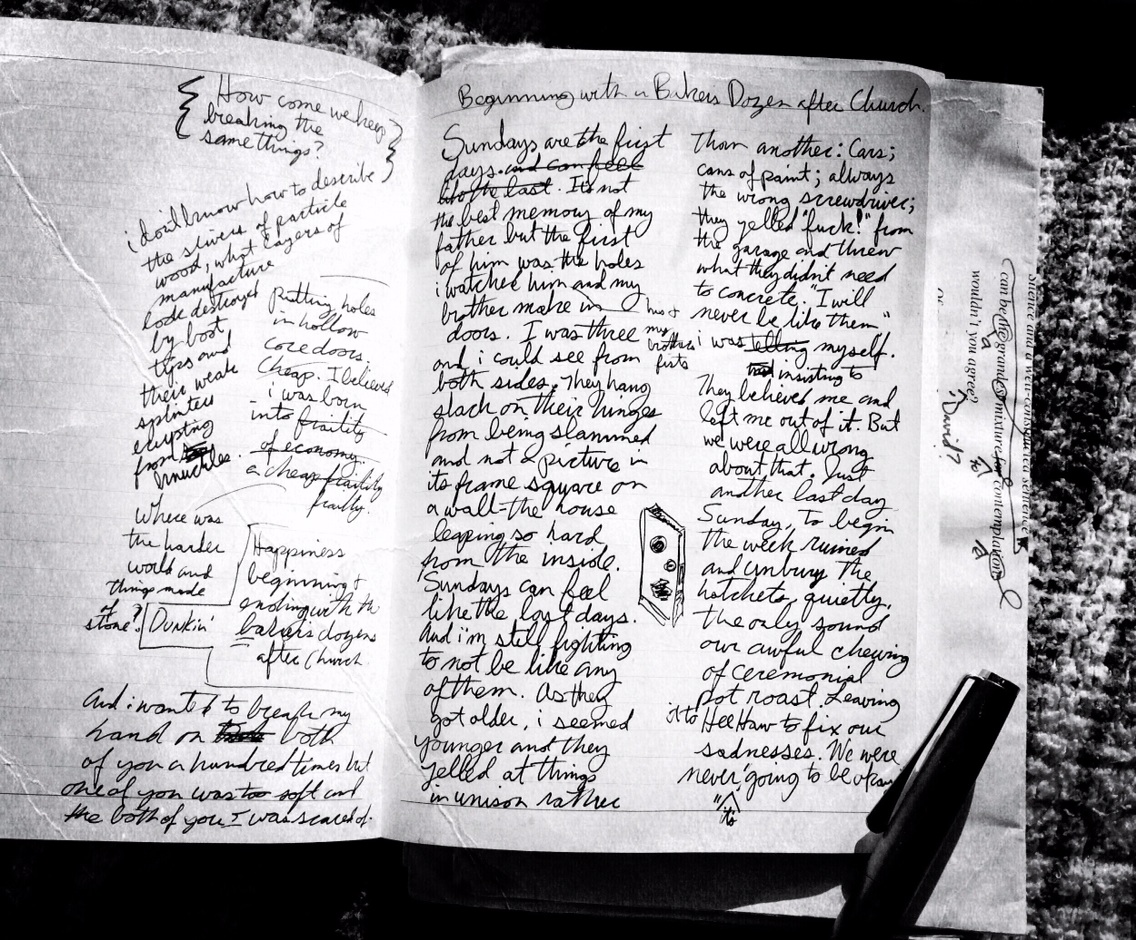 How come we keep
breaking the
same things?
i don't know how to describe
the slivers of particle
wood, what layers of
manufacture
look destroyed
by boot
tips and
their weak
splinters
erupting
from
knuckles.
Putting holes
in hollow
core doors.
Cheap. I believed
i was born
into frailty
of economy
a cheap frailty
frailty.
Where was
the harder
world and
things made
of
stone?
Dunkin'
Happiness
beginning &
ending with the
bakers dozens
after church.
And i wanted to break my
hand on both
of you a hundred times but
one of you was too soft and
the both of you I was scared of.
Beginning with a Bakers Dozen after Church.
Sundays are the first
days. and can feel
like the last. It's not
the best memory of my
father but the first
of him was the holes
i watched him and my
brother make in
doors. I was three
and i could see from
both sides. They hang
slack on their hinges
from being slammed
and not a picture in
its frame square on
a wall - the house
leaping so hard
from the inside.
Sundays can feel
like the last days.
And i'm still fighting
to not be like any
of them. As they
got older, i seemed
younger and they
yelled at things
in unison rather
his &
my
brothers
fists
Than another: Cars;
cans of paint; always
the wrong screwdriver;
they yelled "fuck!" from
the garage and threw
what they didn't need
to concrete. "I will
never be like them"
i was telling myself.
insisting to
They believed me and
left me out of it. But
we were all wrong
about that. Just
another last day
Sunday, To begin
the week ruined
and unbury the
hatchets, quietly,
the only sound
our awful chewing
of ceremonial
pot roast. Leaving
it to HeeHaw to fix our
sadnesses. We were
never going to be okay
silence and a well-constructed sentence
can be the grandest mixture for contemplation
wouldn't you agree?
David?